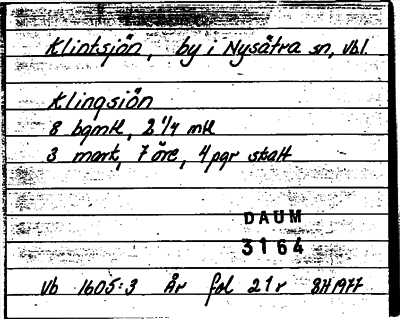 Klintsjön, by i Nysätra sn, Vbl.
Klingsiön
8 bgmtl, 2 1/4 mtl
3 mark, 7 öre, 4 pgr skatt
DAUM
3164
Vb 1605:3 År fol 21r